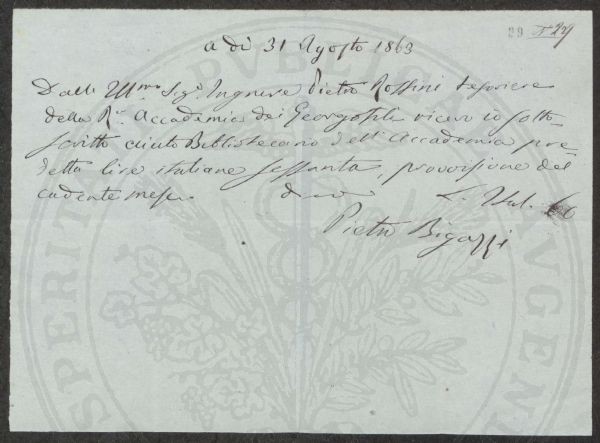 29 N 29
a dì 31 Agosto 1863
Dall' Ill.mo Sig.r Ingnere Pietro Rossini tesoriere
della R. Accademia dei Georgofili ricevo io sotto-
scritto aiuto Bibliotecario dell' Accademia pre-
detta lire italiane sessanta, provvisione del
cadente mese. dico L. Ital. 60
Pietro Bigazzi
PROSPERITATI PUBLICAE AUGENDAE